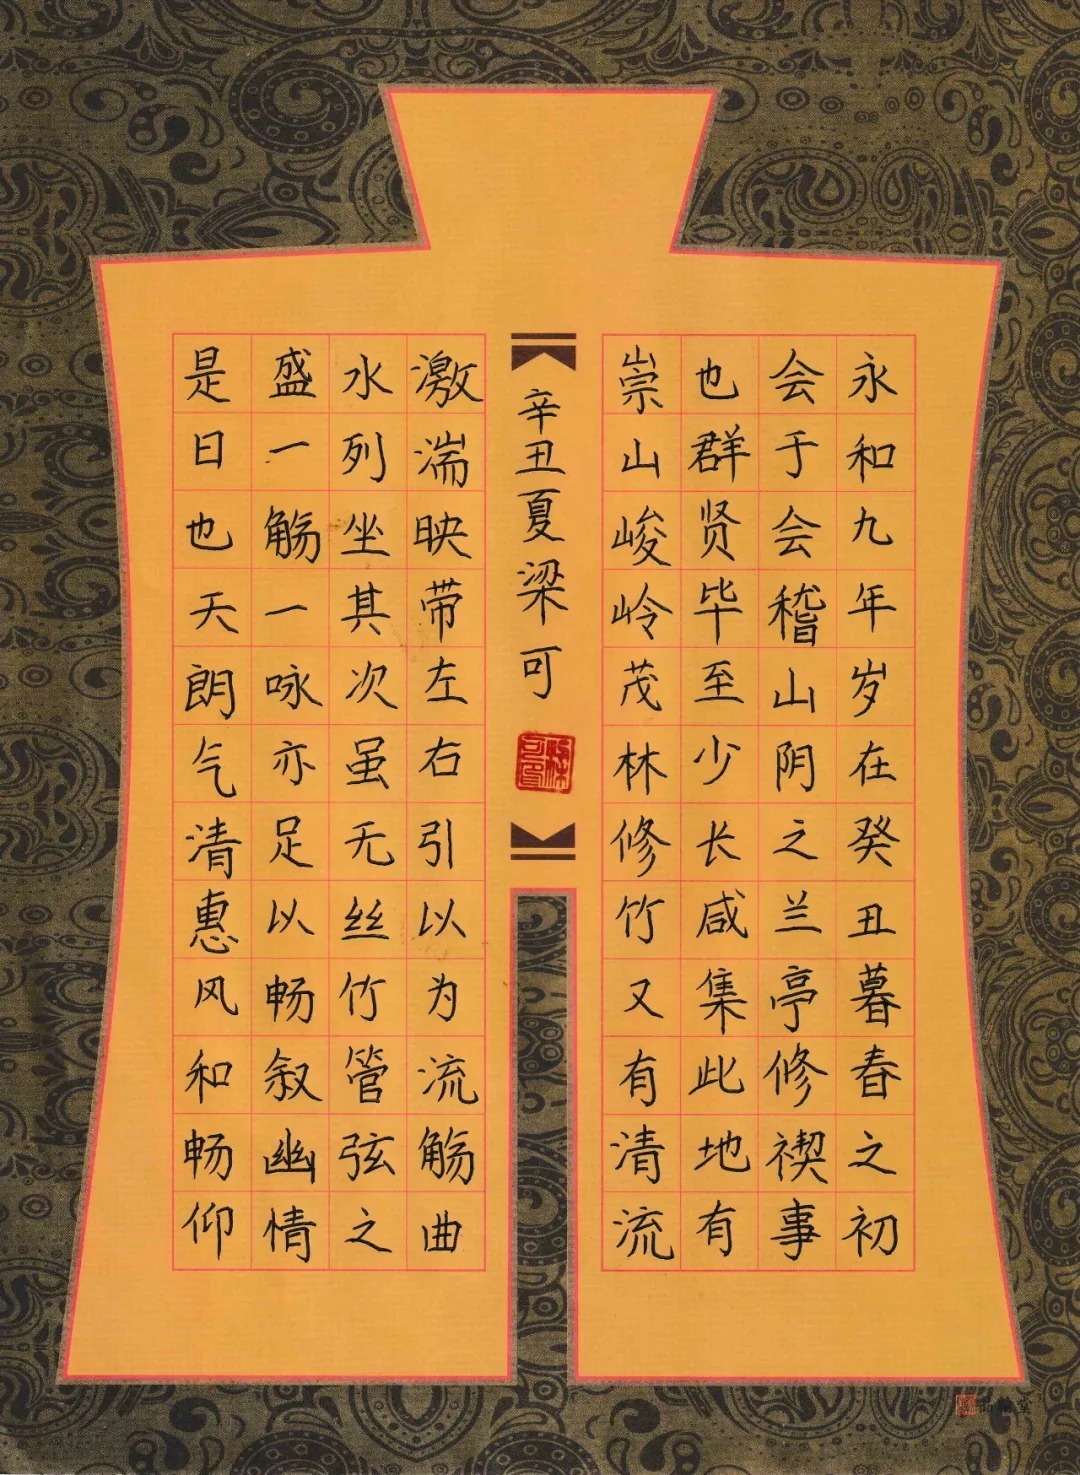 永和九年岁在癸丑暮春之初
会于会稽山阴之兰亭修禊事
也群贤毕至少长咸集此地有
崇山峻岭茂林修竹又有清流
激湍映带左右引以为流觞曲
水列坐其次虽无丝竹管弦之
盛一觞一咏亦足以畅叙幽情
是日也天朗气清惠风和畅仰
辛丑夏梁可
梁可印